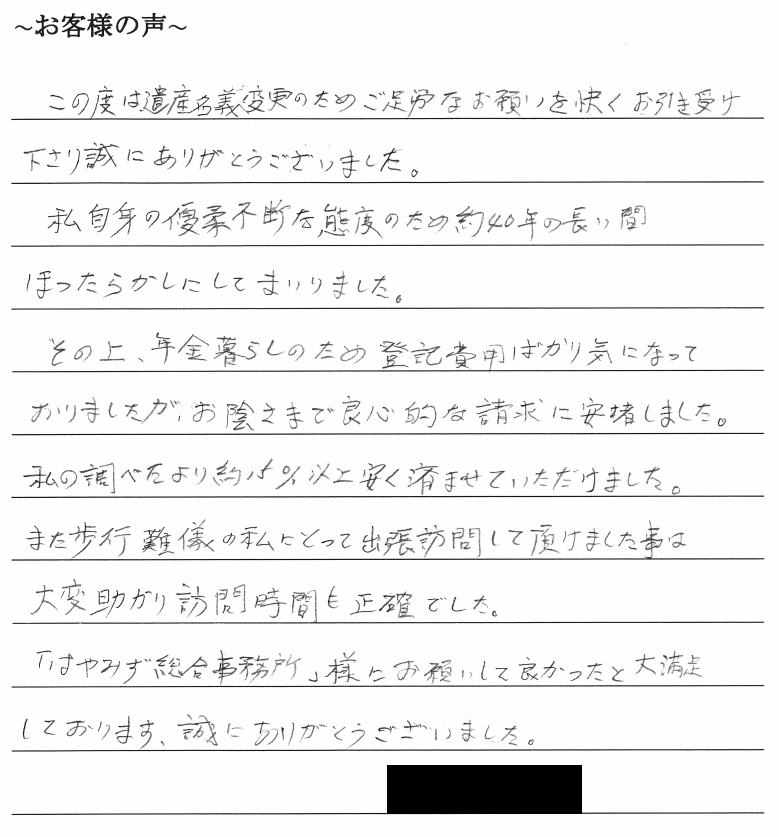 ~お客様の声~
この度は遺産名義変更のためご足労なお願いを快くお引き受け
下さり誠にありがとうございました。
私自身の優柔不断な態度のため約40年の長い間
ほったらかしにしてまいりました。
その上、年金暮らしのため登記費用ばかり気になって
おりましたが、お陰さまで良心的な請求に安堵しました。
私の調べたより約15%以上安く済ませていただけました。
また歩行難儀の私にとって出張訪問して頂けました事は
大変助かり訪問時間も正確でした。
「はやみず総合事務所」様にお願いして良かったと大満足
しております、誠にありがとうございました。